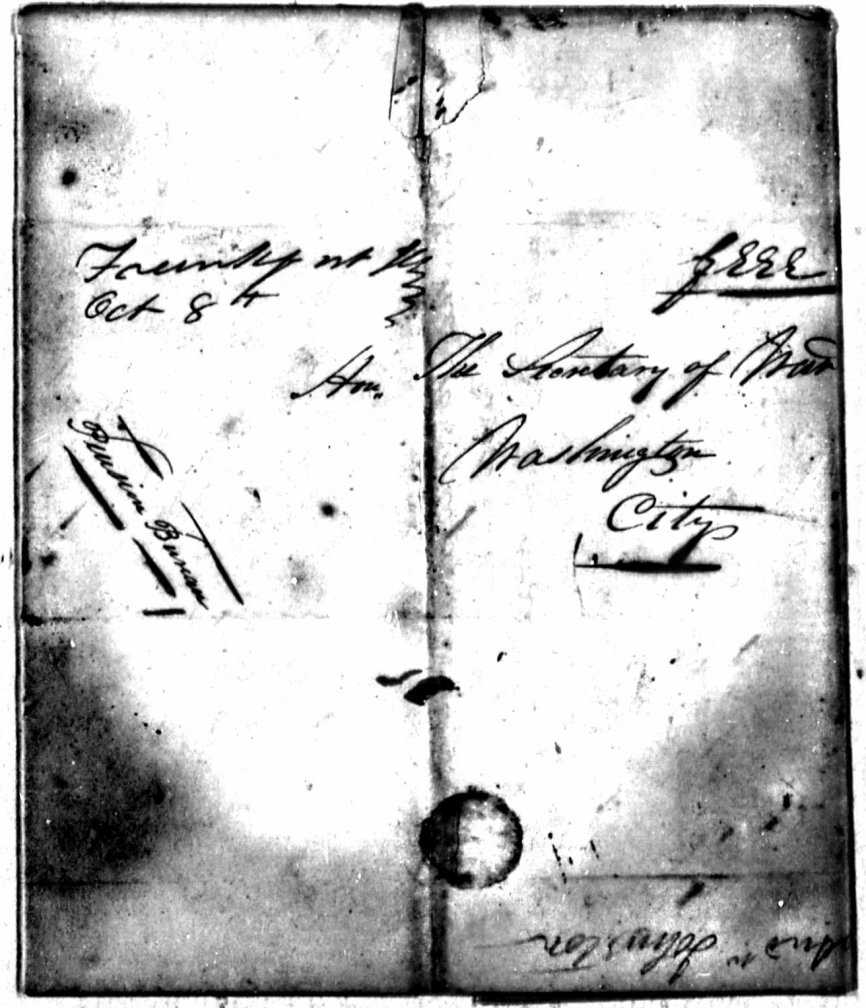 Oct 8th
FREE
Hon. The Secretary of War
Washington
City
Pension Bureau
Johnston